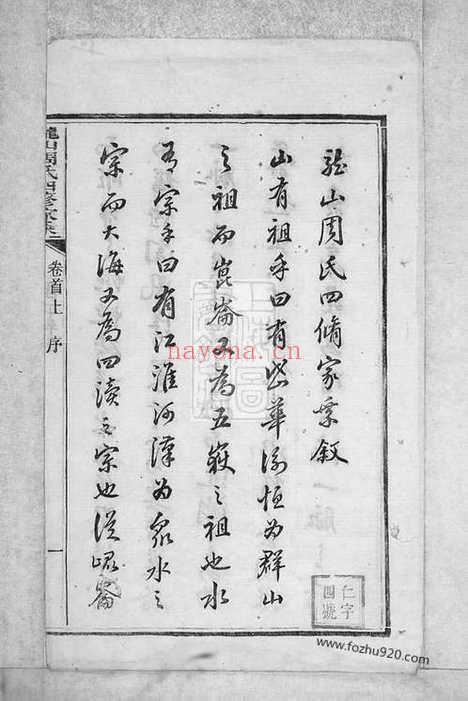 龍山周氏四脩家乘叙
山有祖乎曰有岱華衡恒為群山
之祖而崑崙又為五嶽之祖也水
有宗乎曰有江淮河漢為衆水之
宗而大海又為四瀆之宗也從崐崙
龍山周氏四修家乘
卷首上 序
一
仁字
四號
hayona.cn
www.fozhu920.com